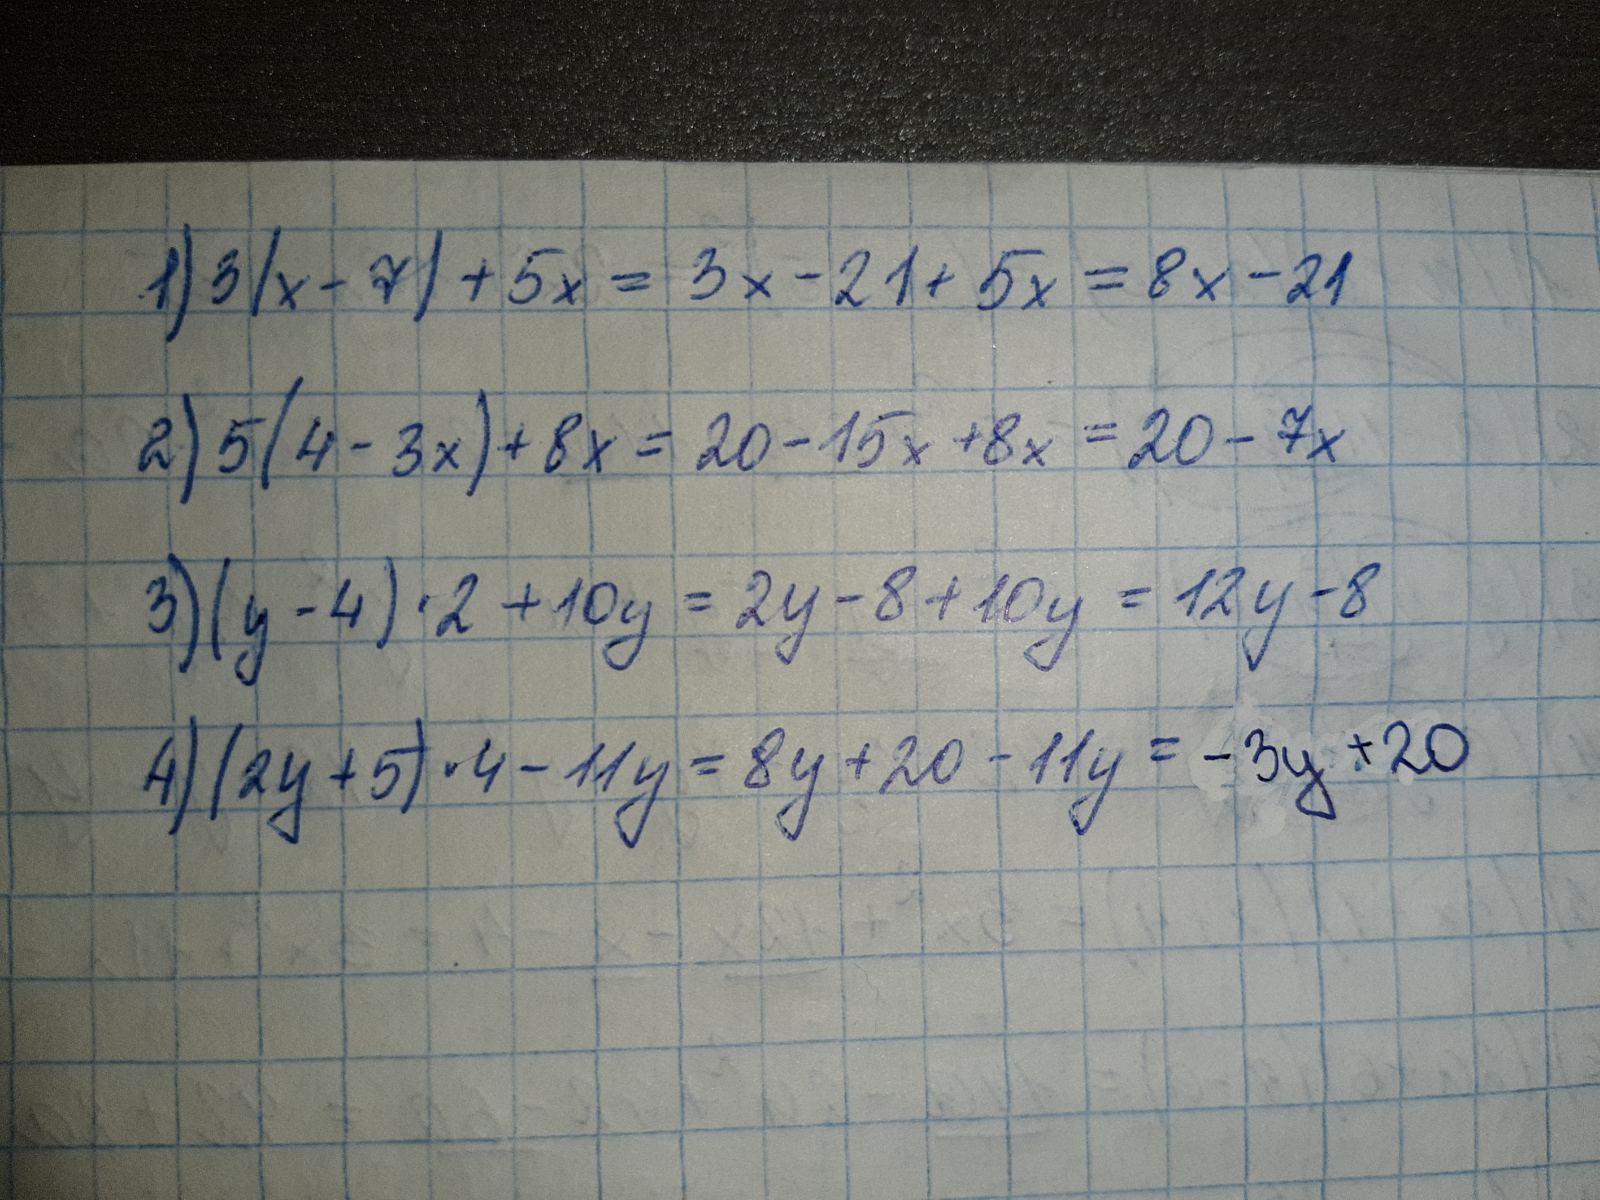 1) 3(x - 7) + 5x = 3x - 21 + 5x = 8x - 21
2) 5(4 - 3x) + 8x = 20 - 15x + 8x = 20 - 7x
3) (y - 4) · 2 + 10y = 2y - 8 + 10y = 12y - 8
4) (2y + 5) · 4 - 11y = 8y + 20 - 11y = -3y + 20